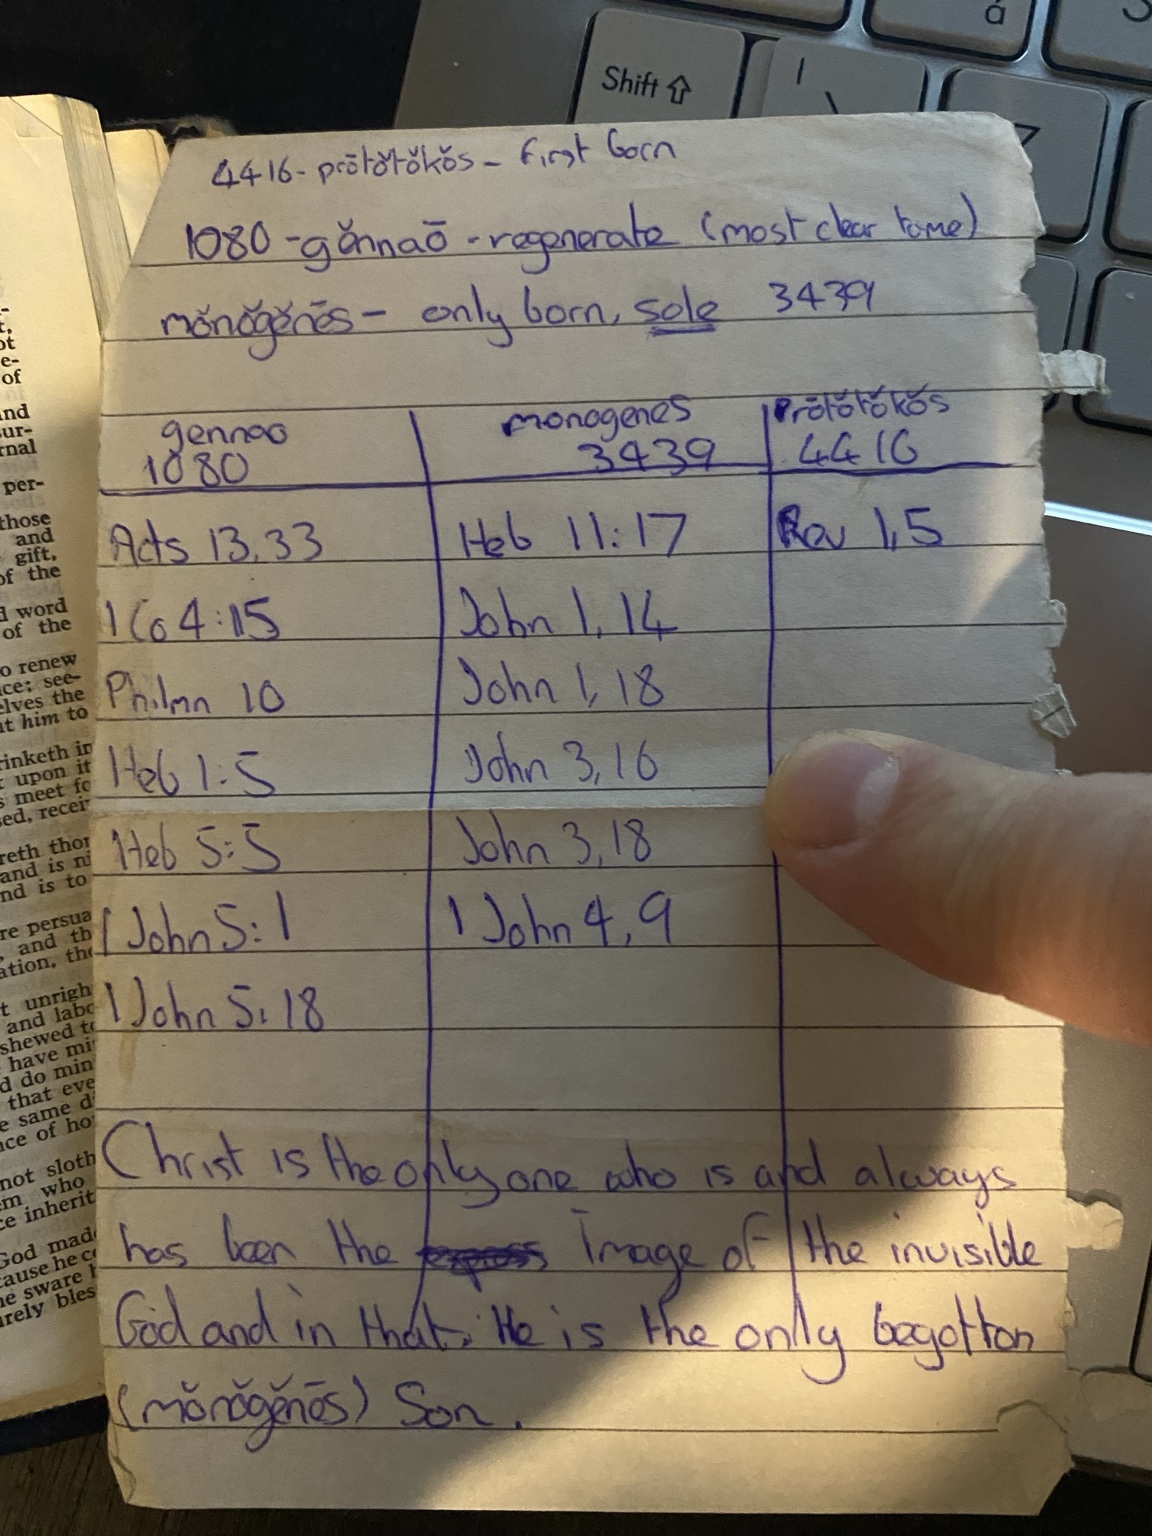 Shift
á
4416- prōtŏtŏkŏs - first born
1080 - gĕnnaō - regenerate (most clear to me)
mŏnŏgĕnēs - only born, sole 3439
gennao
1080
monogenes
3439
Prōtŏtŏkŏs
4416
Acts 13,33 Heb 11:17 Rev 1,5
1 Co 4:15 John 1, 14
Philmn 10 John 1, 18
Heb 1:5 John 3,16
Heb 5:5 John 3,18
1 John 5:1 1 John 4,9
1 John 5:18
Christ is the only one who is and always
has been the Image of the invisible
God and in that, He is the only begotton
(mŏnŏgĕnēs) Son.
of
and
per-
those
and
gift,
of the
word
of the
o renew
ce; see-
elves the
at him to
upon it
and is
nd is to
and
ation, the
and
shewed to
have
d do
that
same
not sloth
em who
inherit
God made
cause he
sware